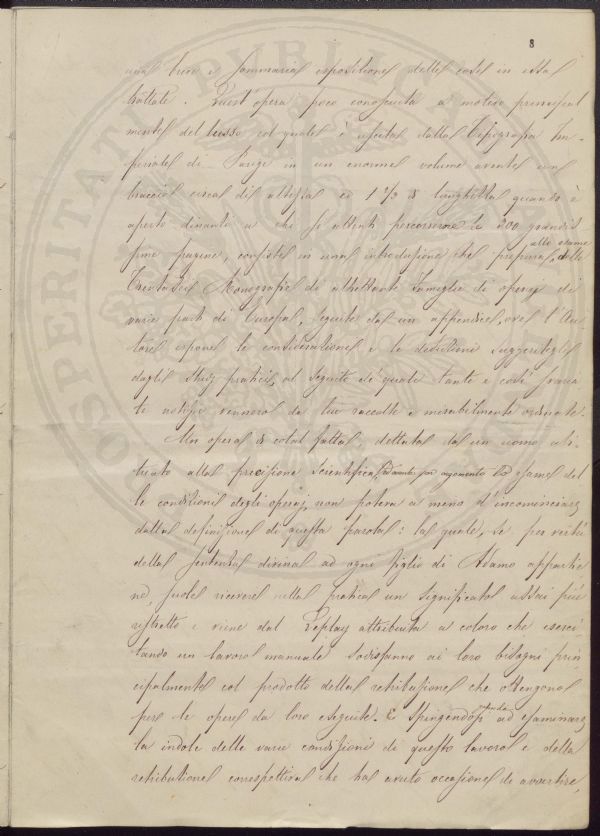 8
una breve e sommaria esposizione delle cose in essa
trattate. Quest'opera poco conosciuta a motivo principal
mente del lusso col quale è uscita dalla Tipografia Im-
periale di Parigi in un enorme volume avente un
braccio circa di altezza ed 1 1/2 di lunghezza quando è
aperto dinanzi a chi si attenti percorrerne le 300 grandis
sime pagine, consiste in una introduzione che prepara allo esame delle
Trentasei Monografie di altrettante Famiglie di operaj di
varie parti di Europa, seguite da un appendice, ove l'Au-
tore espone le considerazioni e le deduzioni suggeritegli
dagli studj pratici, al seguito de' quali tante e così svaria
te notizie vennero da lui raccolte e mirabilmente ordinate.
Un opera di cotal fatta, dettata da un uomo abi
tuato alla precisione scientifica, ed avente per argomento lo esame del
le condizioni degli operaj, non poteva a meno d'incominciare
dalla definizione di questa parola: la quale, se per virtù
della sentenza divina ad ogni figlio di Adamo appartie
ne, suole ricevere nella pratica un significato assai più
ristretto e viene dal Leplay attribuita a coloro che eserci
tando un lavoro manuale sodisfanno ai loro bisogni prin
cipalmente col prodotto della retribuzione che ottengono
per le opere da loro eseguite. E spingendosi ad esaminare
la indole delle varie condizioni di questo lavoro e della
retribuzione correspettiva che ha avuto occasione di avvertire,
OSPERITATI PUBLICAE